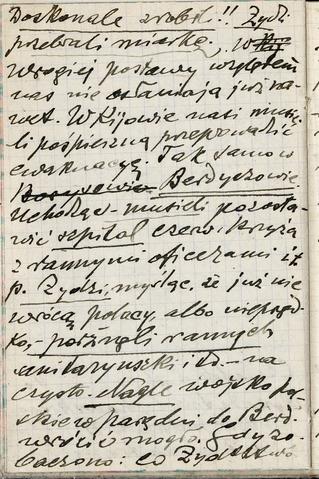 Doskonale zrobił!! Żydzi
przebrali miarkę, w
wrogiej postawy względem
nas nie osłaniają już na-
wet. W Kijowie nasi musie-
li pośpieszną przeprowadzić
ewakuację. Tak samo w
Berdyczowie.
Uchodząc musieli pozosta-
wić szpital czerw. krzyża
z rannymi oficerami i t.
p. Żydzi, myśląc, że już nie
wrócą polacy, albo niepręd-
ko, – porżnęli rannych
sanitaryuszki i t.d. – na
czysto. Nagle wojsko pol-
skie w parę dni do Berd.
wrócić mogło. Gdy zo-
baczono: co Żydzi